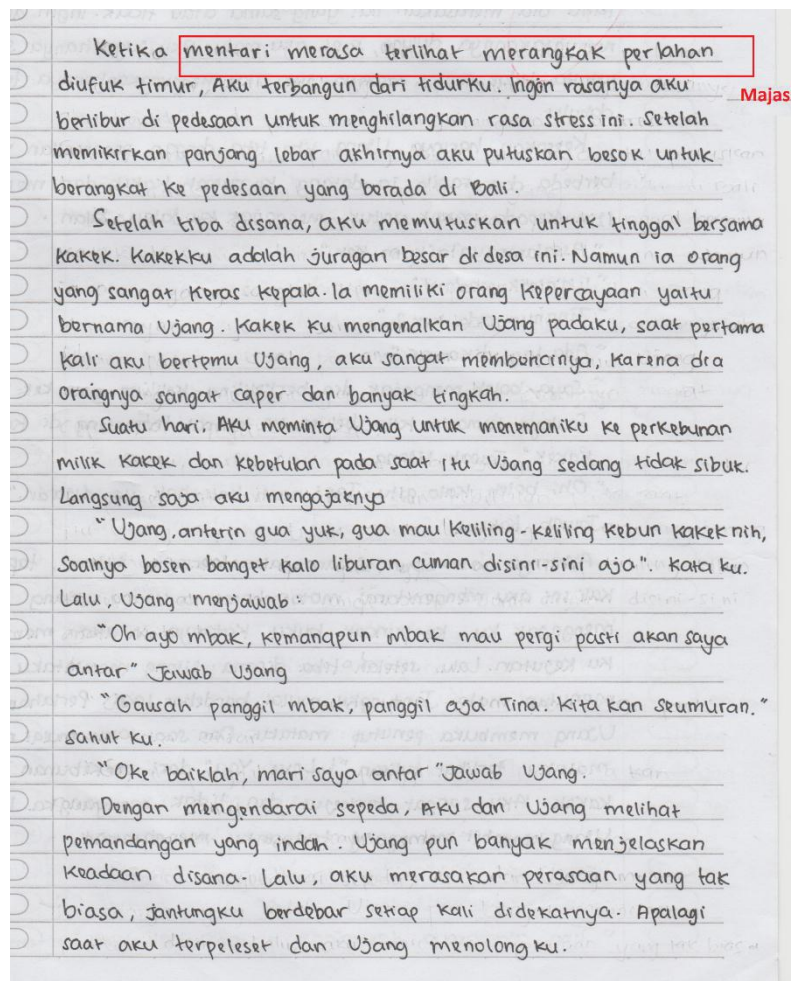 Ketika mentari merasa terlihat merangkak perlahan
diufuk timur, Aku terbangun dari tidurku. Ingin rasanya aku
Majas
berlibur di pedesaan untuk menghilangkan rasa stress ini. Setelah
memikirkan panjang lebar akhirnya aku putuskan besok untuk
berangkat ke pedesaan yang berada di Bali.
Setelah tiba disana, aku memutuskan untuk tinggal bersama
kakek. Kakekku adalah juragan besar di desa ini. Namun ia orang
yang sangat keras kepala. Ia memiliki orang kepercayaan yaitu
bernama Ujang. Kakek ku mengenalkan Ujang padaku, saat pertama
kali aku bertemu Ujang, aku sangat membencinya, karena dia
orangnya sangat caper dan banyak tingkah.
Suatu hari. Aku meminta Ujang untuk menemaniku ke perkebunan
milik kakek dan kebetulan pada saat itu Ujang sedang tidak sibuk.
Langsung saja aku mengajaknya
"Ujang, anterin gua yuk, gua mau keliling-keliling kebun kakek nih,
Soalnya bosen banget kalo liburan cuman disini-sini aja". Kata ku.
Lalu, Ujang menjawab.
"Oh ayo mbak, kemanapun mbak mau pergi pasti akan saya
antar" Jawab Ujang
"Gausah panggil mbak, panggil aja Tina. Kita kan seumuran."
Sahut ku.
"Oke baiklah, mari saya antar "Jawab Ujang.
Dengan mengendarai sepeda, Aku dan Ujang melihat
pemandangan yang indah. Ujang pun banyak menjelaskan
keadaan disana. Lalu, aku merasakan perasaan yang tak
biasa, jantungku berdebar setiap kali didekatnya. Apalagi
saat aku terpeleset dan Ujang menolong ku.